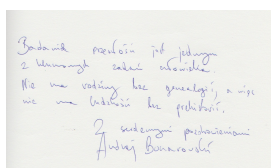 Badanie przeszłości jest jednym
z zadań człowieka.
Nie ma rodziny bez genealogii, a więc
nie ma ludzkości bez prehistorii.
Z serdecznymi pozdrowieniami
Andrzej